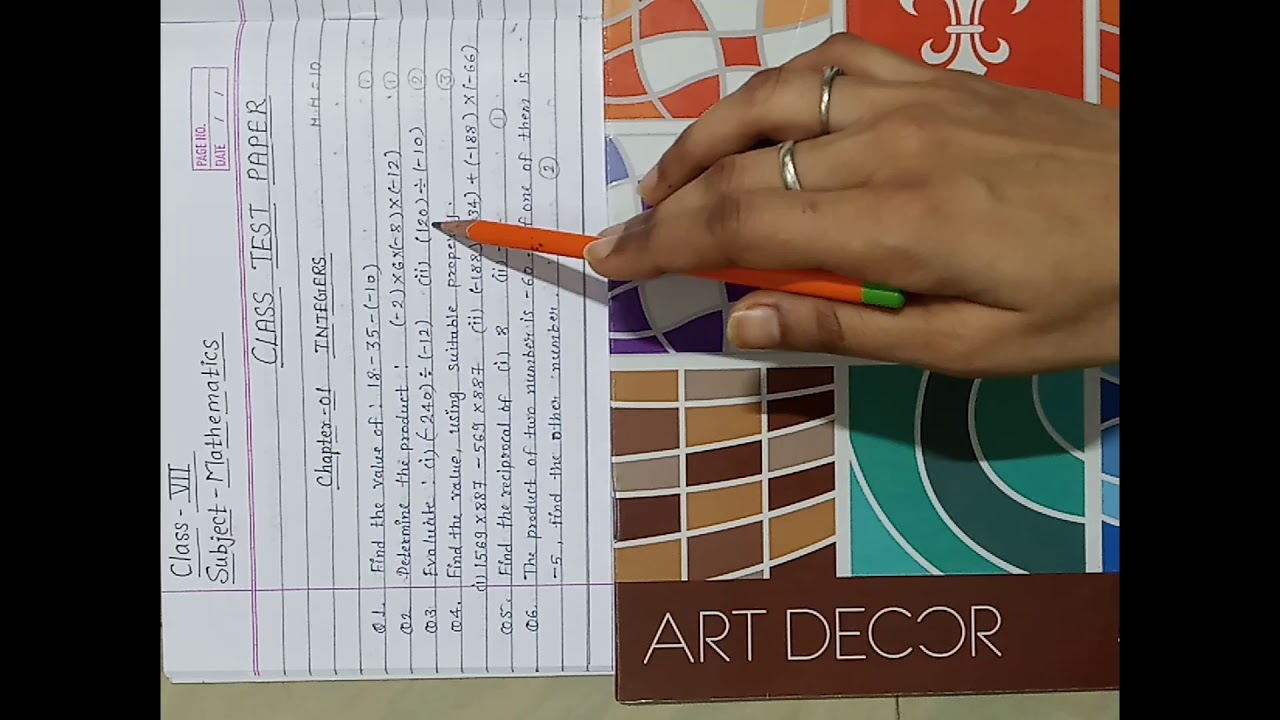 Class - VII
Subject - Mathematics
PAGE NO.
DATE / /
CLASS TEST PAPER
Chapter-01 INTEGERS M.M=10
Q1. Find the value of : 18-35-(-10) ①
Q2 Determine the product : (-2)×6×(-8)×(-12) ①
Q3. Evaluate : i) (-240)÷(-12) (ii) (120)÷(-10) ②
Q4. Find the value, using suitable ③
(i) 1569×887-569×887 (ii) 34)+(-188)×(-66)
Q5. Find the reciprocal of (i) 8 (ii) ①
Q6. The product of two number is -60 one of them is
-5, find the other number. ②
ART DECOR